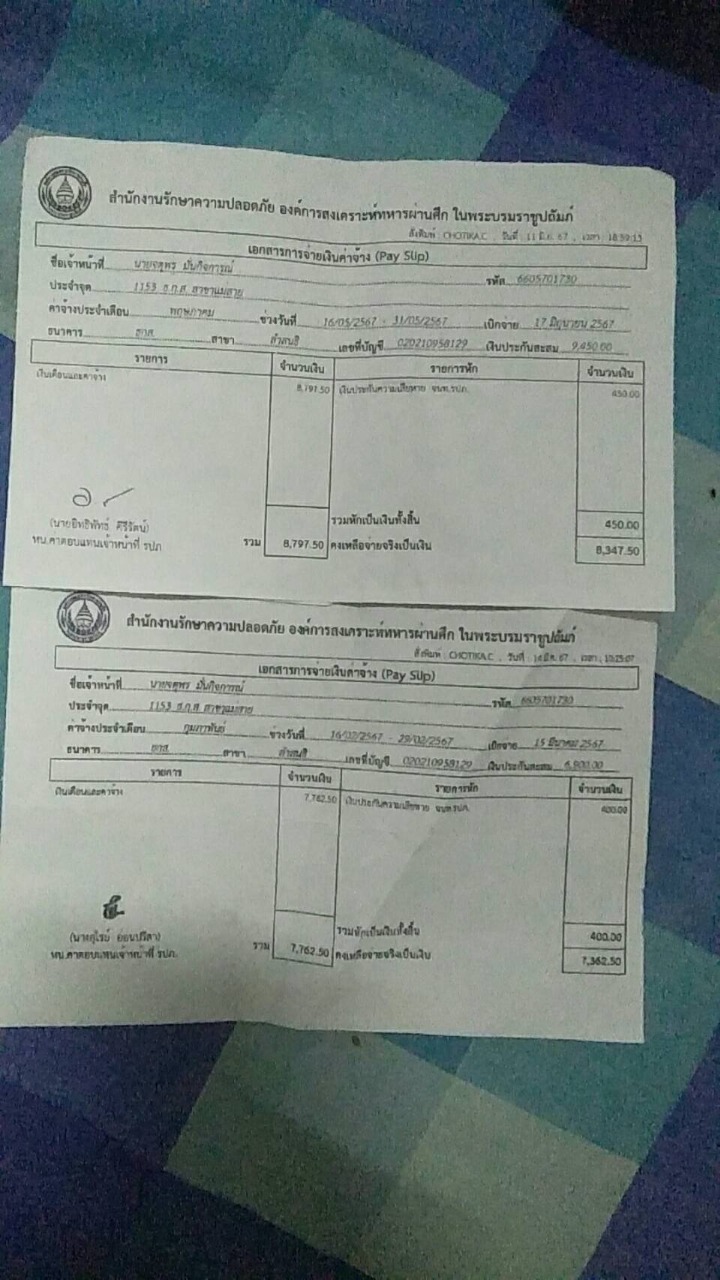 สำนักงานรักษาความปลอดภัย องค์การสงเคราะห์ทหารผ่านศึก ในพระบรมราชูปถัมภ์
สั่งพิมพ์ : CHOTIKA.C , วันที่ : 11 มิ.ย. 67 , เวลา : 18:59:13
เอกสารการจ่ายเงินค่าจ้าง (Pay Slip)
ชื่อเจ้าหน้าที่ นายจตุพร มั่นกิจการณ์ รหัส 6605701730
ประจำจุด 1153 ธ.ก.ส สาขาแม่สาย
ค่าจ้างประจำเดือน พฤษภาคม ช่วงวันที่ 16/05/2567 - 31/05/2567 เบิกจ่าย 17 มิถุนายน 2567
ธนาคาร ธกส. สาขา ลำสนธิ เลขที่บัญชี 020210958129 เงินประกันสะสม 9,450.00
รายการ จำนวนเงิน รายการหัก จำนวนเงิน
เงินเดือนและค่าจ้าง 8,797.50 เงินประกันความเสียหาย จนท.รปภ. 450.00
(นายอิทธิพัทธ์ ศิริรัตน์)
หน.ค่าตอบแทนเจ้าหน้าที่ รปภ.
รวมหักเป็นเงินทั้งสิ้น 450.00
รวม 8,797.50 คงเหลือจ่ายจริงเป็นเงิน 8,347.50
สำนักงานรักษาความปลอดภัย องค์การสงเคราะห์ทหารผ่านศึก ในพระบรมราชูปถัมภ์
สั่งพิมพ์ : CHOTIKA.C , วันที่ : 14 มี.ค. 67 , เวลา :
เอกสารการจ่ายเงินค่าจ้าง (Pay Slip)
ชื่อเจ้าหน้าที่ นายจตุพร มั่นกิจการณ์ รหัส 6605701730
ประจำจุด 1153 ธ.ก.ส สาขาแม่สาย
ค่าจ้างประจำเดือน กุมภาพันธ์ ช่วงวันที่ 16/02/2567 - 29/02/2567 เบิกจ่าย 15 มีนาคม 2567
ธนาคาร ธกส. สาขา ลำสนธิ เลขที่บัญชี 020210958129 เงินประกันสะสม 6,900.00
รายการ จำนวนเงิน รายการหัก จำนวนเงิน
เงินเดือนและค่าจ้าง 7,762.50 เงินประกันความเสียหาย จนท.รปภ. 400.00
รวมหักเป็นเงินทั้งสิ้น 400.00
หน.ค่าตอบแทนเจ้าหน้าที่ รปภ. รวม 7,762.50 คงเหลือจ่ายจริงเป็นเงิน 7,362.50